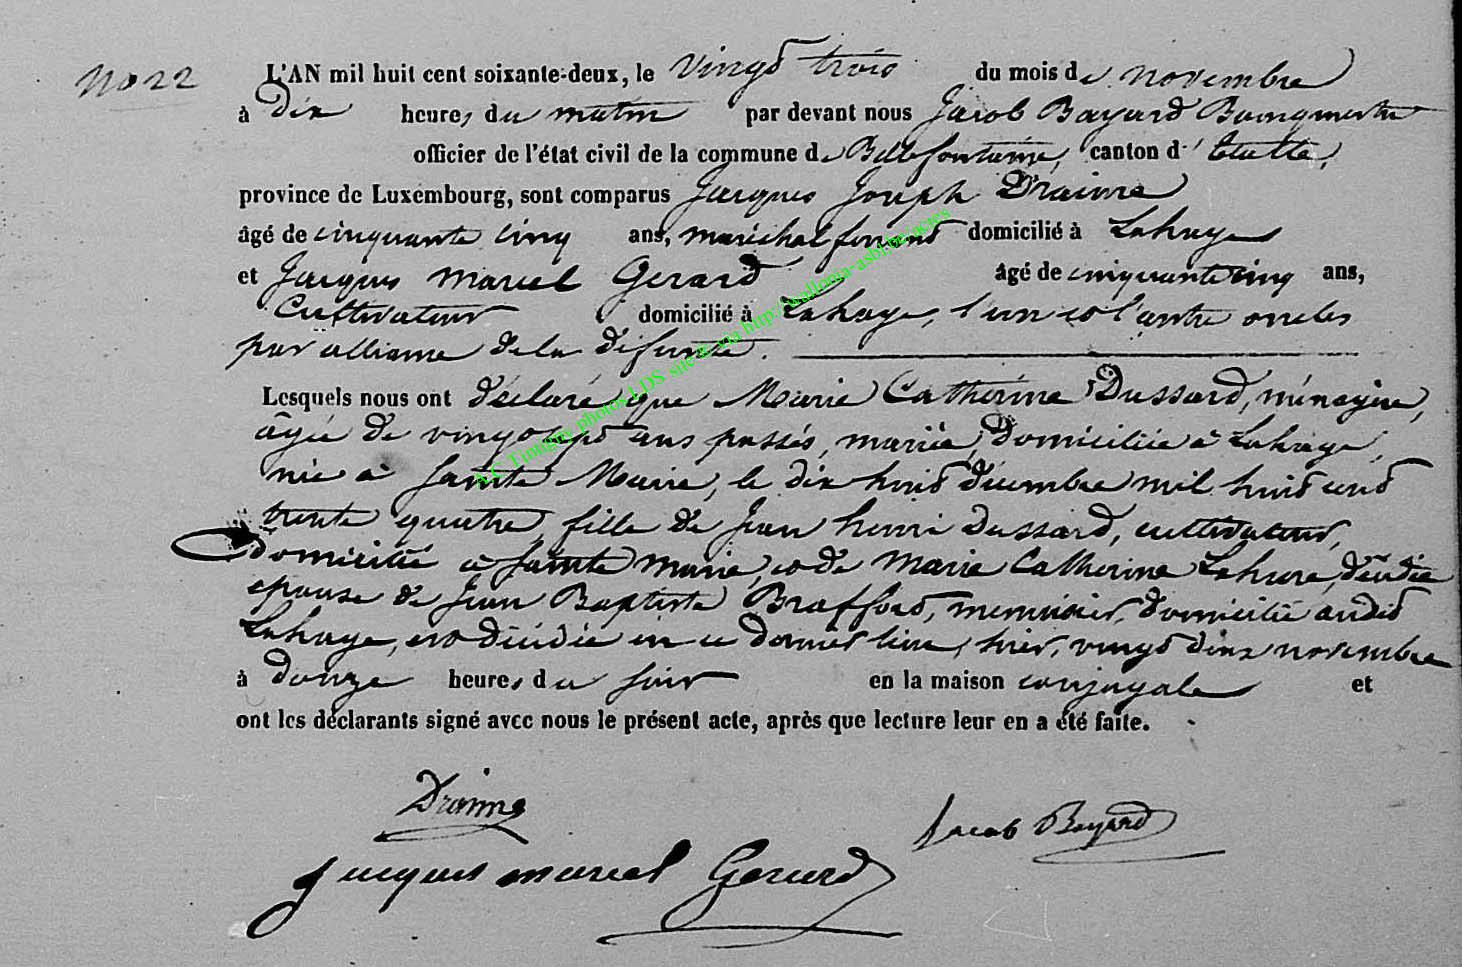 No 22
L'AN mil huit cent soixante-deux, le vingt trois du mois de novembre
à dix heures du matin par devant nous Jacob Bayard Bourgmestre
officier de l'état civil de la commune de Bellefontaine, canton d'Etalle,
province de Luxembourg, sont comparus Jacques Joseph Draime
âgé de cinquante cinq ans, maréchal ferrand domicilié à Lahaye
et Jacques Marcel Gerard âgé de cinquante cinq ans,
Cultivateur domicilié à Lahaye, l'un et l'autre oncles
par alliance de la défunte.
Lesquels nous ont déclaré que Marie Catherine Dussard, ménagère,
âgée de vingt sept ans passés, mariée, domiciliée à Lahaye,
née à Sainte Marie, le dix huit décembre mil huit cent
trente quatre, fille de Jean henri Dussard, cultivateur,
domicilié à Sainte Marie, et de Marie Catherine Lahure, décédée
épouse de Jean Baptiste Braffort, menuisier, domicilié audit
Lahaye, est décédée en ce dernier lieu, hier, vingt deux novembre
à douze heures du soir en la maison conjugale et
ont les déclarants signé avec nous le présent acte, après que lecture leur en a été faite.
Draime
Jacob Bayard
Jacques marcel Gerard
A.C Tintigny photos LDS site & via http://wallonia-asbl.be/actes